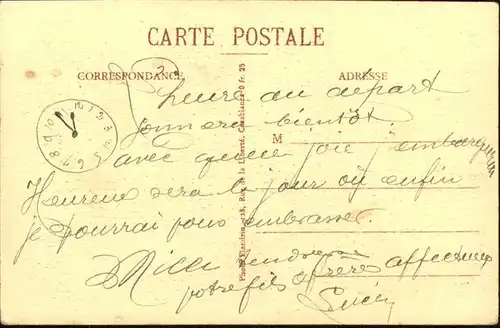 CARTE POSTALE
CORRESPONDANCE
ADRESSE
L'heure au départ
sonnera bientôt.
M
avec quelle joie j'embarquerai
Heureux sera le jour où enfin
je pourrai vous embrasser.
Mille tendresses
votre fils & frère affectueux
Lucien
Photo Flandrin, 128, Rue de la Liberté, Casablanca 0 fr. 25